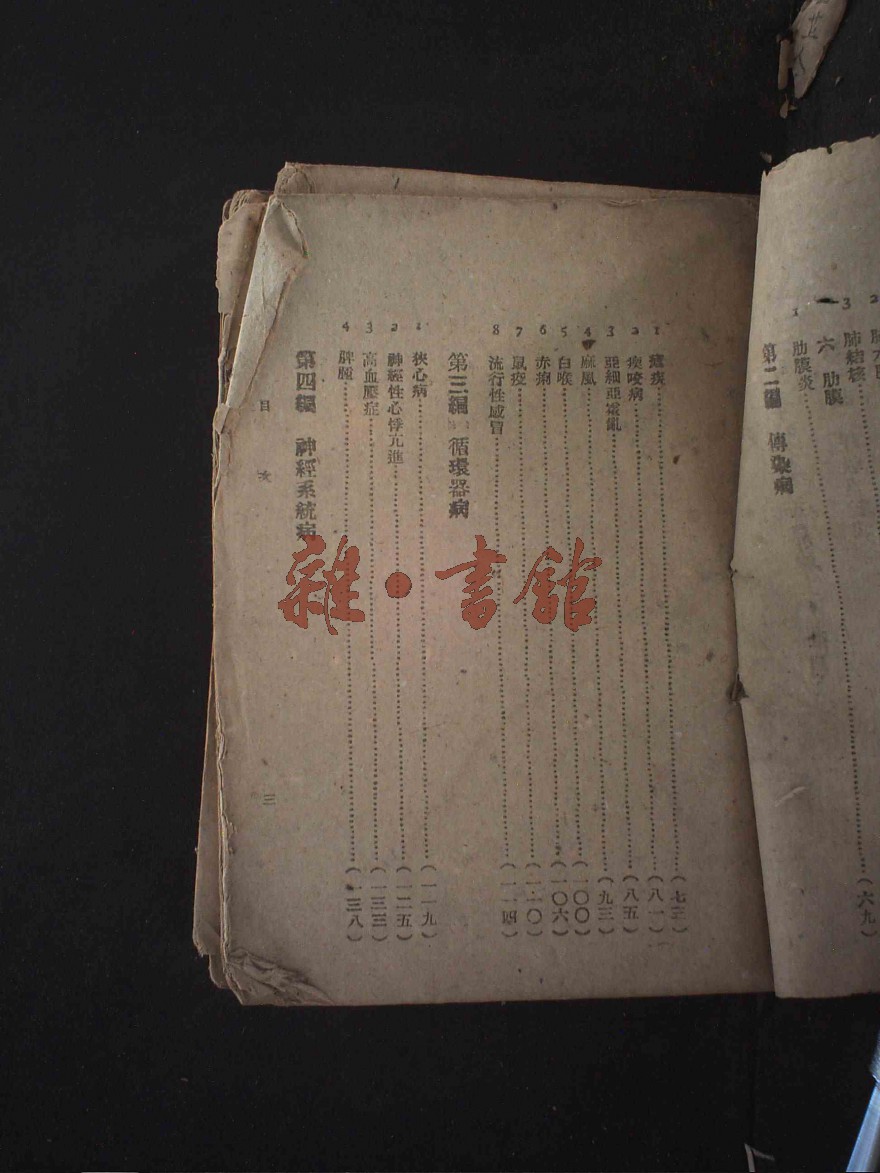 3 肺結核……(六九)
六 肋膜
1 肋膜炎
第二編 傳染病
1 瘧疾……(七三)
2 痰咳病……(八一)
3 亞細亞霍亂……(八五)
4 麻風……(九三)
5 白喉……(一〇〇)
6 赤痢……(一〇六)
7 鼠疫……(一一〇)
8 流行性感冒……(一一四)
第三編 循環器病
1 狹心病……(一一九)
2 神經性心悸亢進……(一二五)
3 高血壓症……(一三三)
4 脾腫……(一三八)
第四編 神經系統病
目 次
三
雜·書館